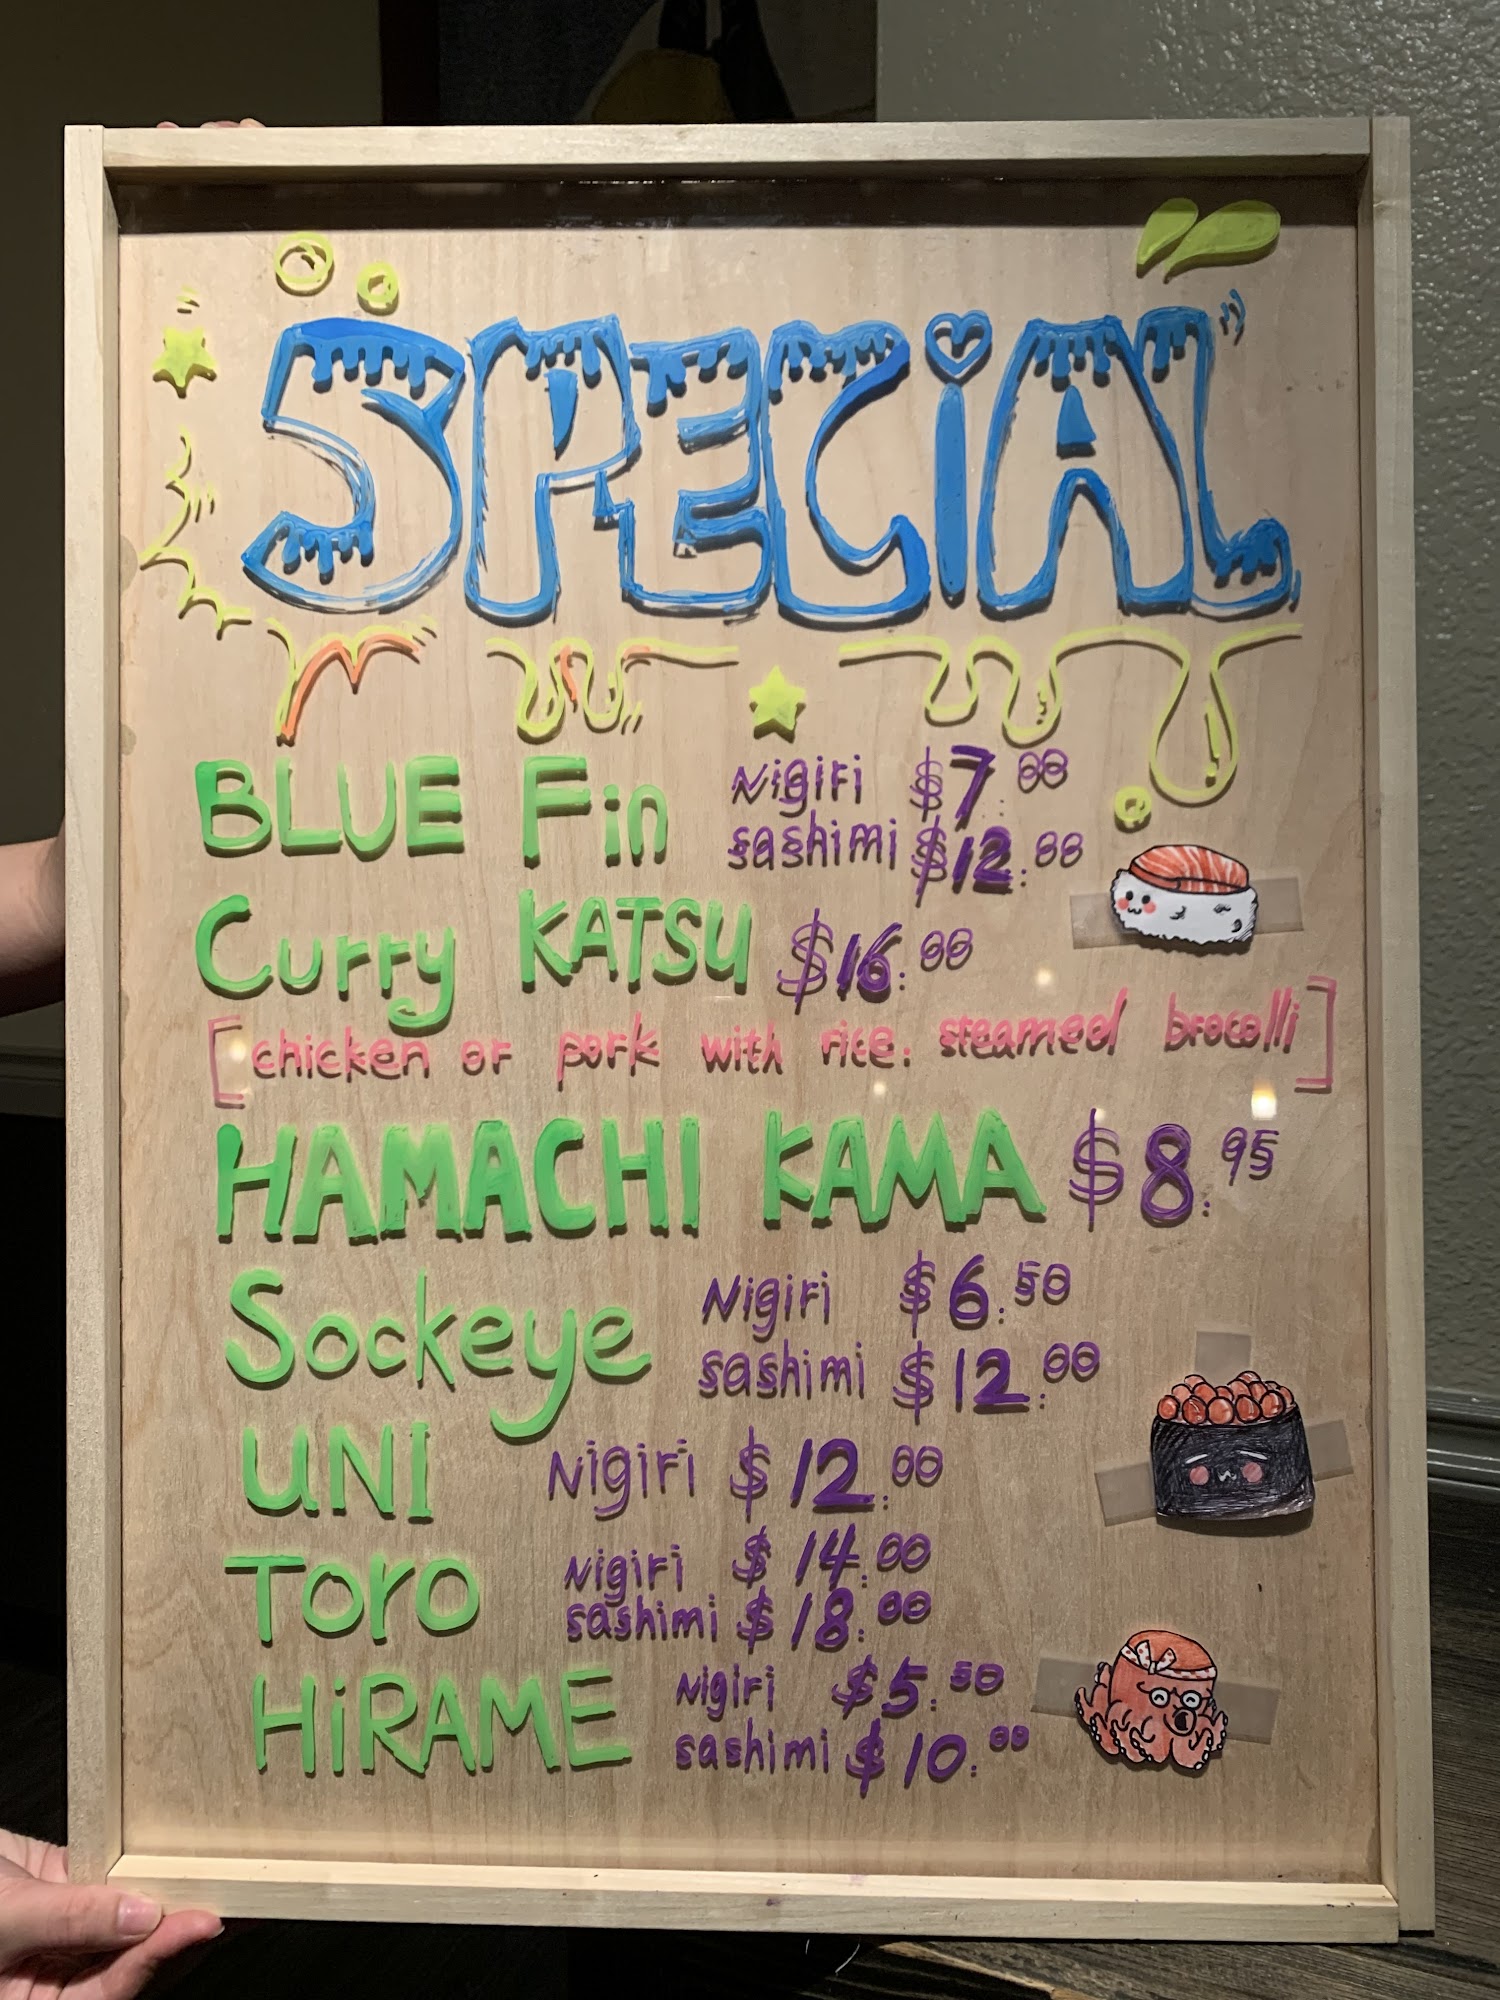 SPECiAL
BLUE Fin Nigiri $7.00
sashimi $12.00
Curry KATSU $16.00
[chicken or pork with rice. steamed brocolli]
HAMACHI KAMA $8.95
Sockeye Nigiri $6.50
sashimi $12.00
UNI Nigiri $12.00
Toro Nigiri $14.00
sashimi $18.00
HiRAME Nigiri $5.50
sashimi $10.00